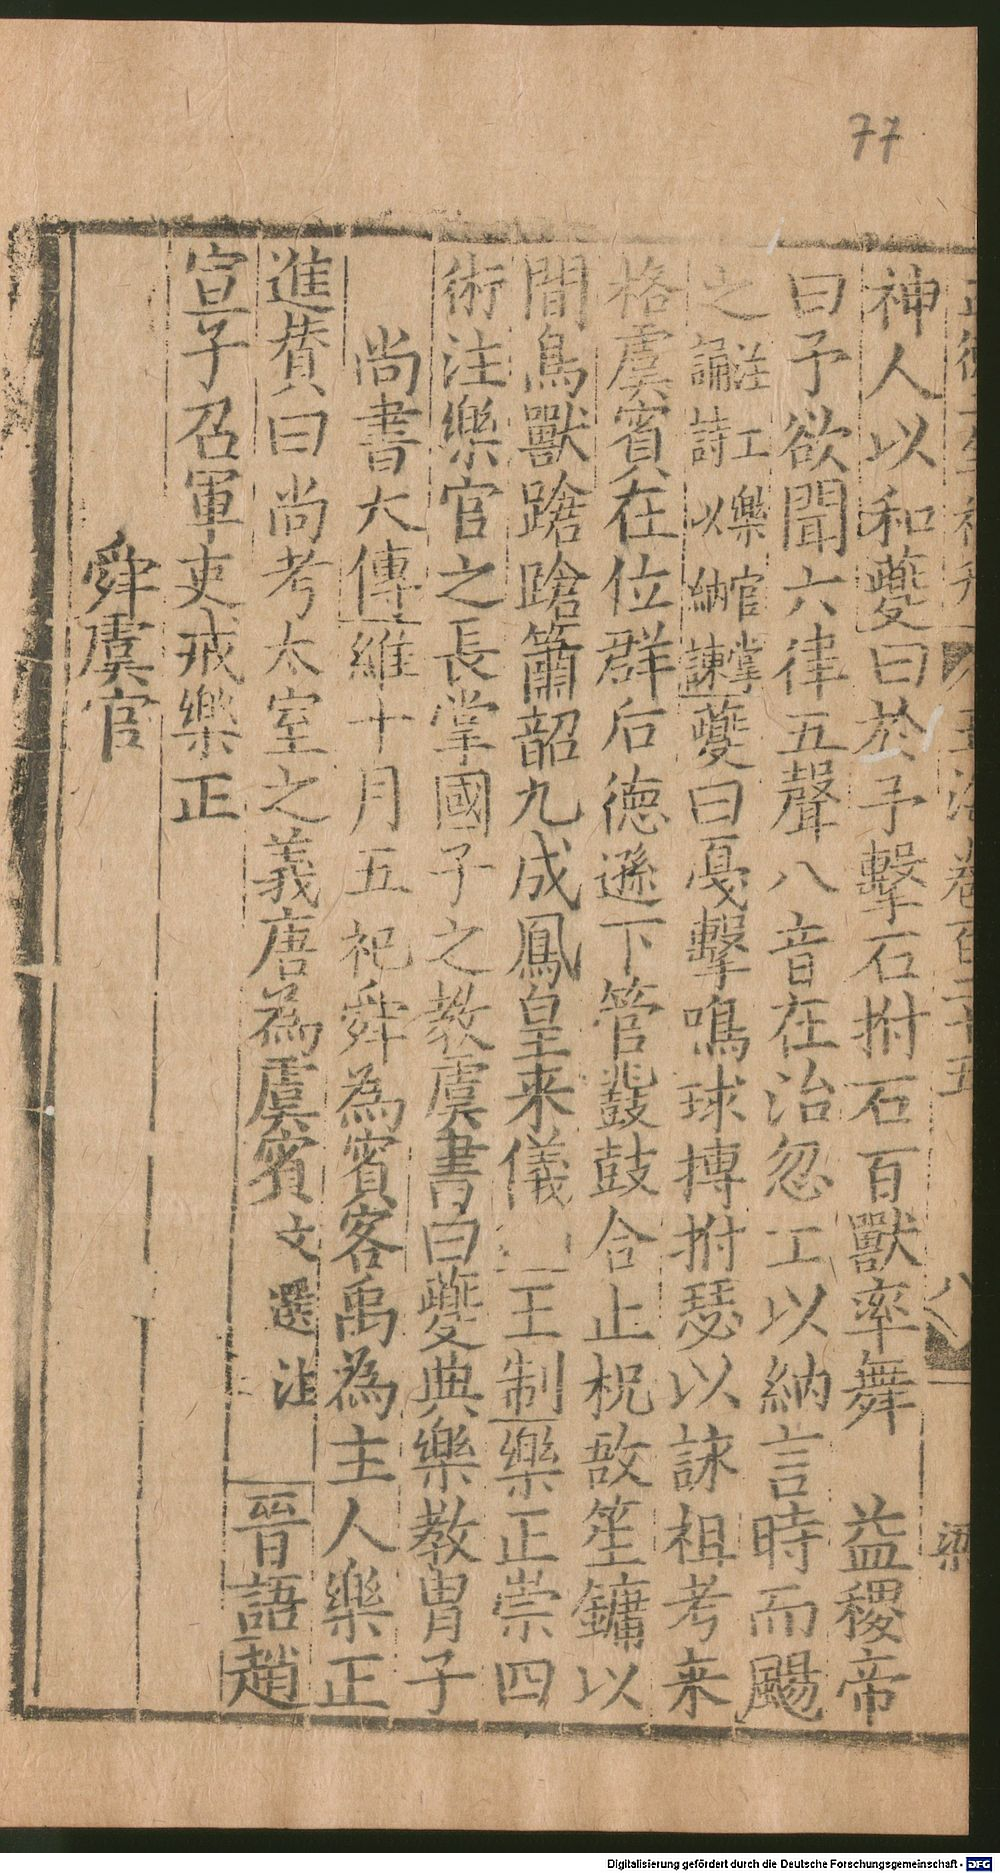 77
玉海卷百二十五
神人以和夔曰於予擊石拊石百獸率舞　益稷帝
曰予欲聞六律五聲八音在治忽工以納言時而颺
之注工樂官掌誦詩以納諫夔曰戞擊鳴球搏拊瑟以詠祖考来
格虞賓在位群后德遜下管鼗鼓合止柷敔笙鏞以
間鳥獸蹌蹌簫韶九成鳳皇来儀　王制樂正崇四
術注樂官之長掌國子之教虞書曰夔典樂教胄子
尚書大傳維十月五祀舜為賓客禹為主人樂正
進贊曰尚考太室之義唐為虞賓文選注　晉語趙
宣子召軍吏戒樂正
舜虞官
Digitalisierung gefördert durch die Deutsche Forschungsgemeinschaft - DFG